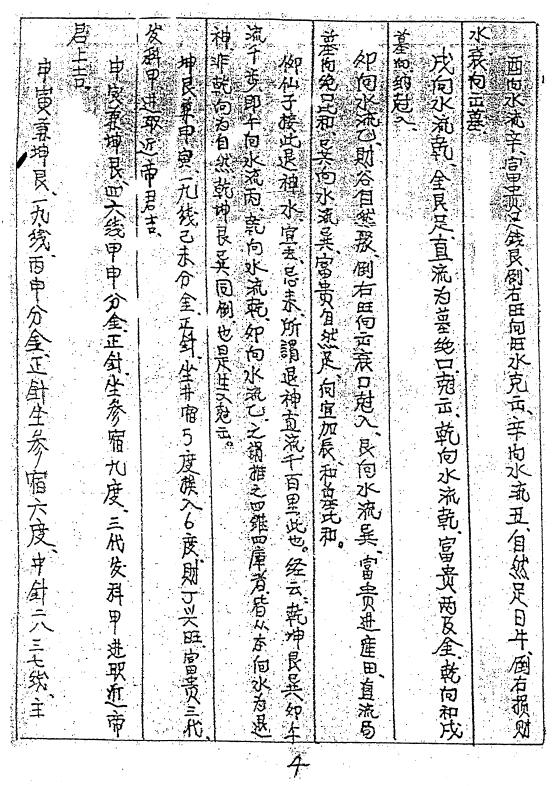 酉向水流辛、富貴 金錢艮、倒右旺向旺水克出、辛向水流丑、自然足日牛、倒右损财
水衰向出墓、
戌向水流乾、金艮足、直流为墓绝口 出、乾向水流乾、富贵两及全、乾向和戌
墓向纳 入、
卯向水流乙、财谷自然聚、倒右旺向出衰口 入、艮向水流巽、富贵进産田、直流局
墓向绝口 和、巽向水流巽、富贵自然足、向宜加辰、和墓 和。
仰仙子 此退神、水宜去忌来、所謂退神直流千百里此也。经云、乾坤艮巽卯午
流千步、即午向水流丙、乾向水流乾、卯向水流乙、之 推之四維四庫者、皆从本向水为退
神非乾向为自然乾坤艮巽同倒、也是生入 出。
坤艮兼申寅、一九线己未分金、正針、坐井宿5度 入6度、財丁兴旺、富貴三代
发科甲进取近帝君吉、
申寅兼坤艮、四六线甲申分金、正針、坐参宿九度、三代发科甲进取近帝
君上吉、
申寅兼坤艮、一九线、丙申分金、正針坐参宿六度、中針二八三七线、主
4